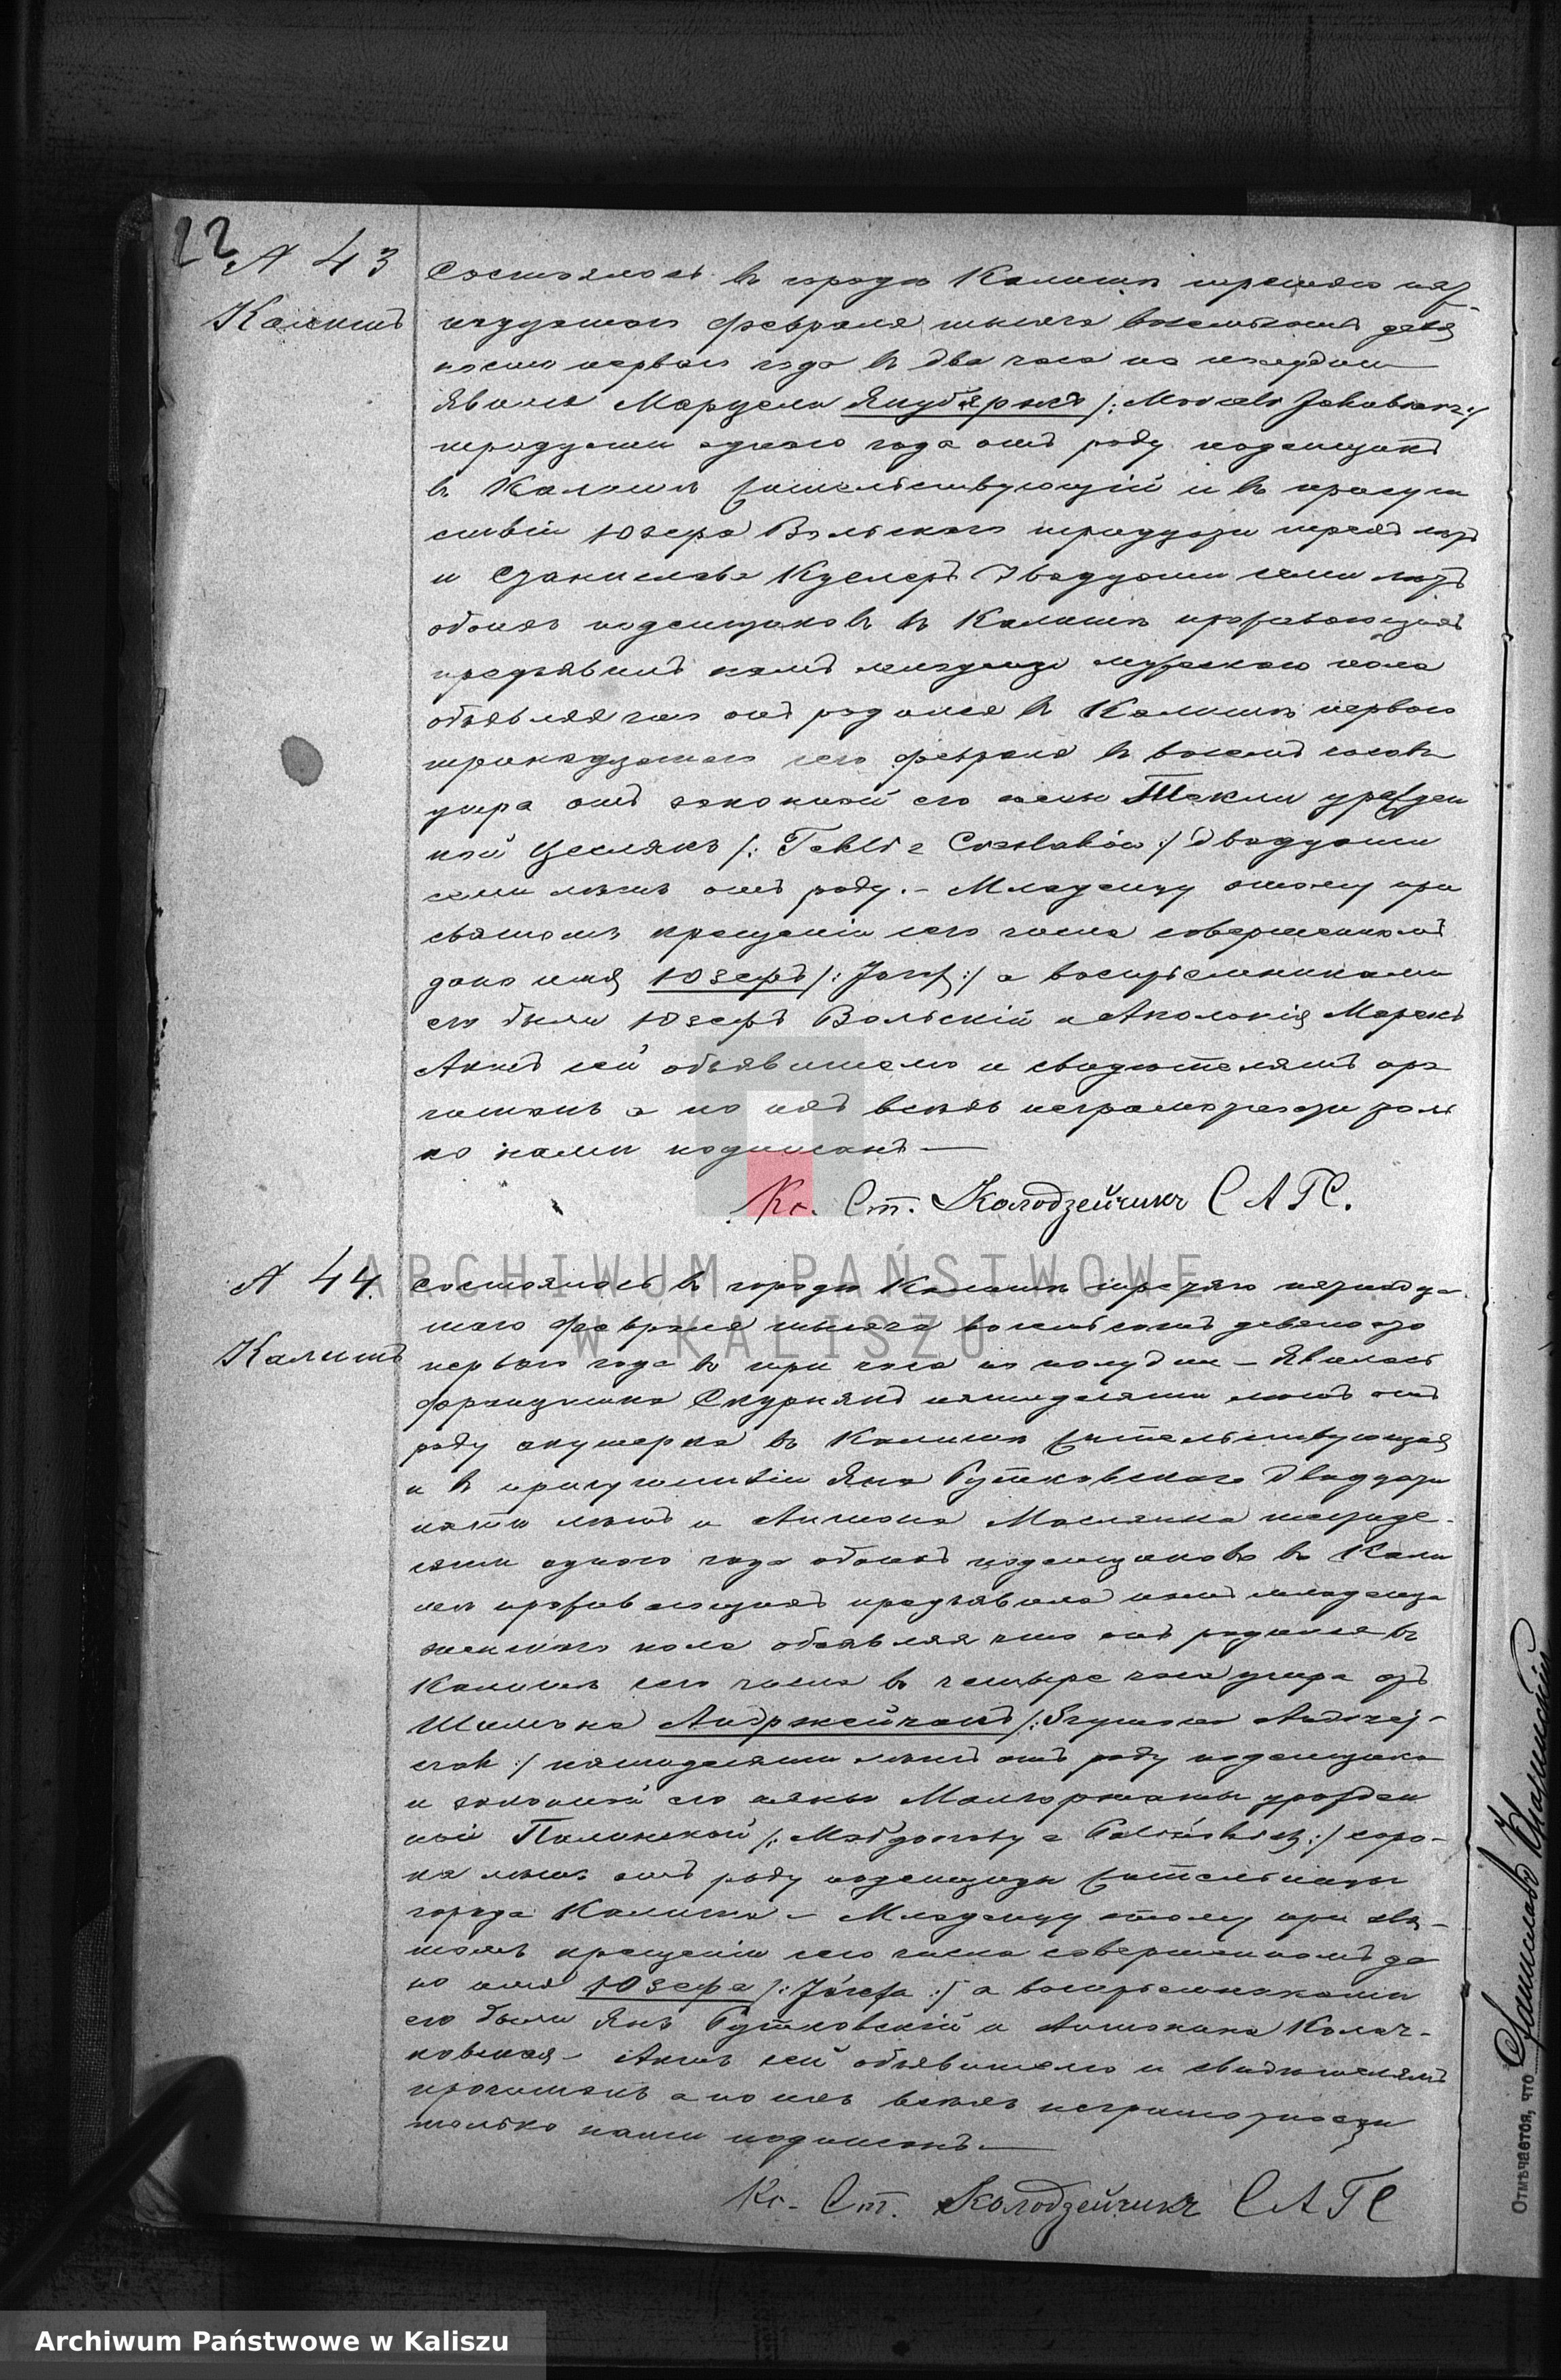 22
№ 43
Калишъ
Состоялось въ городѣ Калишѣ третьяго пят
надцатаго февраля тысяча восемьсотъ девя
носто перваго года въ два часа по полудни
Явился Марцели Якубяржъ /: Marceli Jakubiarz :/
тридцати одного года отъ роду поденщикъ
въ Калишѣ жительствующій и въ присут
ствіи Юзефа Вольскаго тридцати трехъ лѣтъ
и Станислава двадцати семи лѣтъ
обоихъ поденщиковъ въ Калишѣ проживающихъ
предъявилъ намъ младенца мужескаго пола
объявляя что онъ родился въ Калишѣ перваго
тринадцатаго сего февраля въ восемь часовъ
утра отъ законной его жены Текли урожден
ной Цеслякъ /: Tekli z Cieślaków :/ двадцати
семи лѣтъ отъ роду. – Младенцу этому при
святомъ крещеніи сего числа совершенномъ
дано имя Юзефъ /: Józef :/ а воспріемниками
его были Юзефъ Вольскій и Аполонія Марекъ
Актъ сей объявителю и свидѣтелямъ про
читанъ а по ихъ всѣхъ неграмотности толь
ко нами подписанъ —
Кс. Ст. Колодзейчикъ САГС.
№ 44.
Калишъ
Состоялось въ городѣ Калишѣ третяго пятнадца
таго февраля тысяча восемьсотъ девяносто
перваго года въ три часа по полудни – Явилась
Францишка Скурнякъ пятидесяти лѣтъ отъ
роду акушерка въ Калишѣ жительствующая
и въ присутствіи Яна Рутковскаго двадцати
пяти лѣтъ и Антона Маслянка шестьде-
сяти одного года обоихъ поденщиковъ въ Кали
шѣ проживающихъ предъявила намъ младенца
женскаго пола объявляя что онъ родился въ
Калишѣ сего числа въ четыре часа утра отъ
Шимона Андржейчакъ /: Szymona Andrzej-
czak :/ пятидесяти лѣтъ отъ роду поденщика
и законной его жены Малгоржаты урожден
ной Палинской /: Małgorzaty z Palińskich :/ соро-
ка лѣтъ отъ роду поденщицы жительницы
города Калиша – Младенцу этому при свя-
томъ крещеніи сего числа совершенномъ да
но имя Юзефа /: Józefa :/ а воспріемниками
его были Янъ Рутковскій и Антонина Колач-
ковская – Актъ сей объявителю и свидѣтелямъ
прочитанъ а по ихъ всѣхъ неграмотности
только нами подписанъ. —
Кс. Ст. Колодзейчикъ САГС
Отмѣчается, что Станиславъ
ARCHIWUM PAŃSTWOWE
W KALISZU
Archiwum Państwowe w Kaliszu